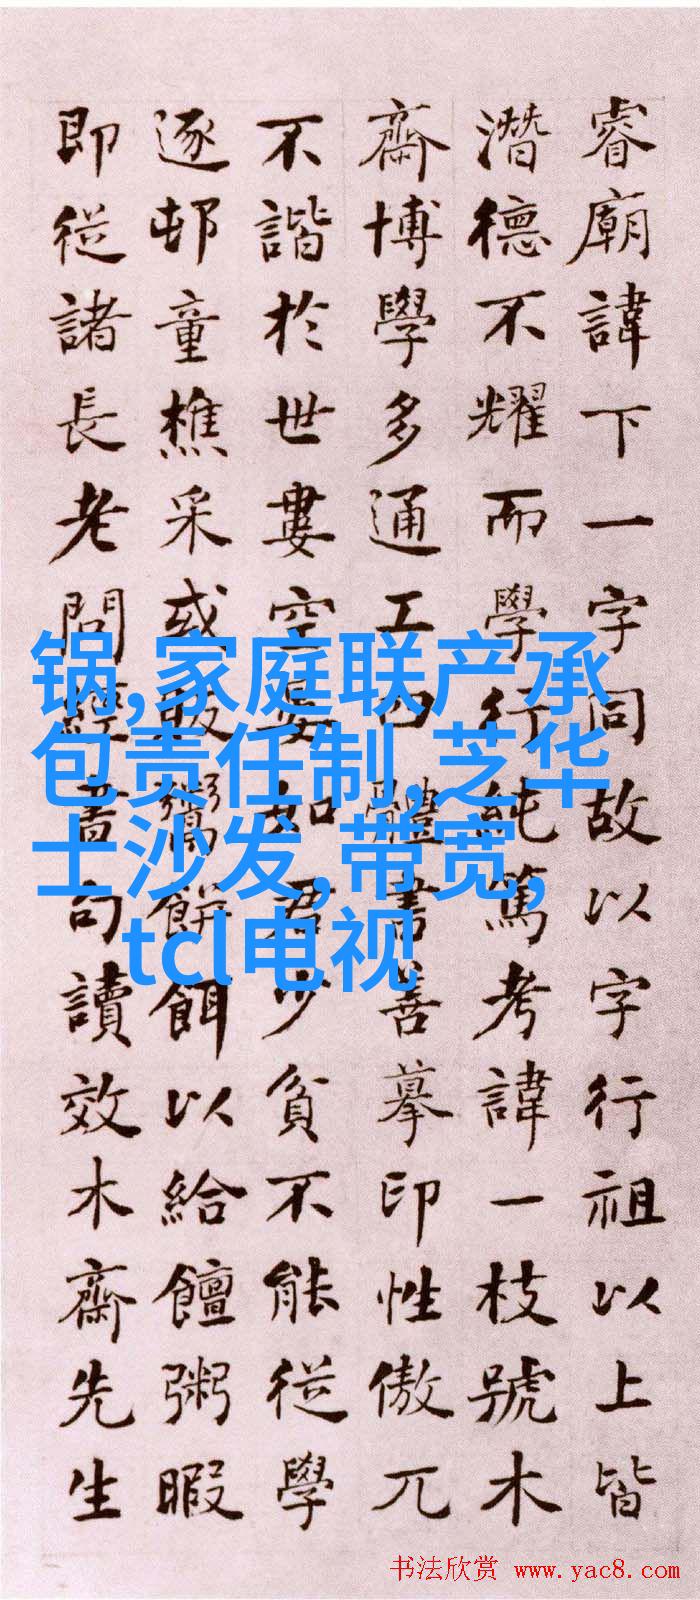 睿廟諱下一字同故以字行祖以上皆
潛德不耀而學行純篤考諱一枝號木
齋博學多通工四體書善摹印性傲兀
不諧於世婁空晏如君少貧不能從學
逐邨童樵采或販鬻餅餌以給饘粥暇
即從諸長老問經書句讀效木齋先生
锅,家庭联产承
包责任制,芝华
士沙发,带宽,
tcl电视
书法欣赏 www.yac8.com